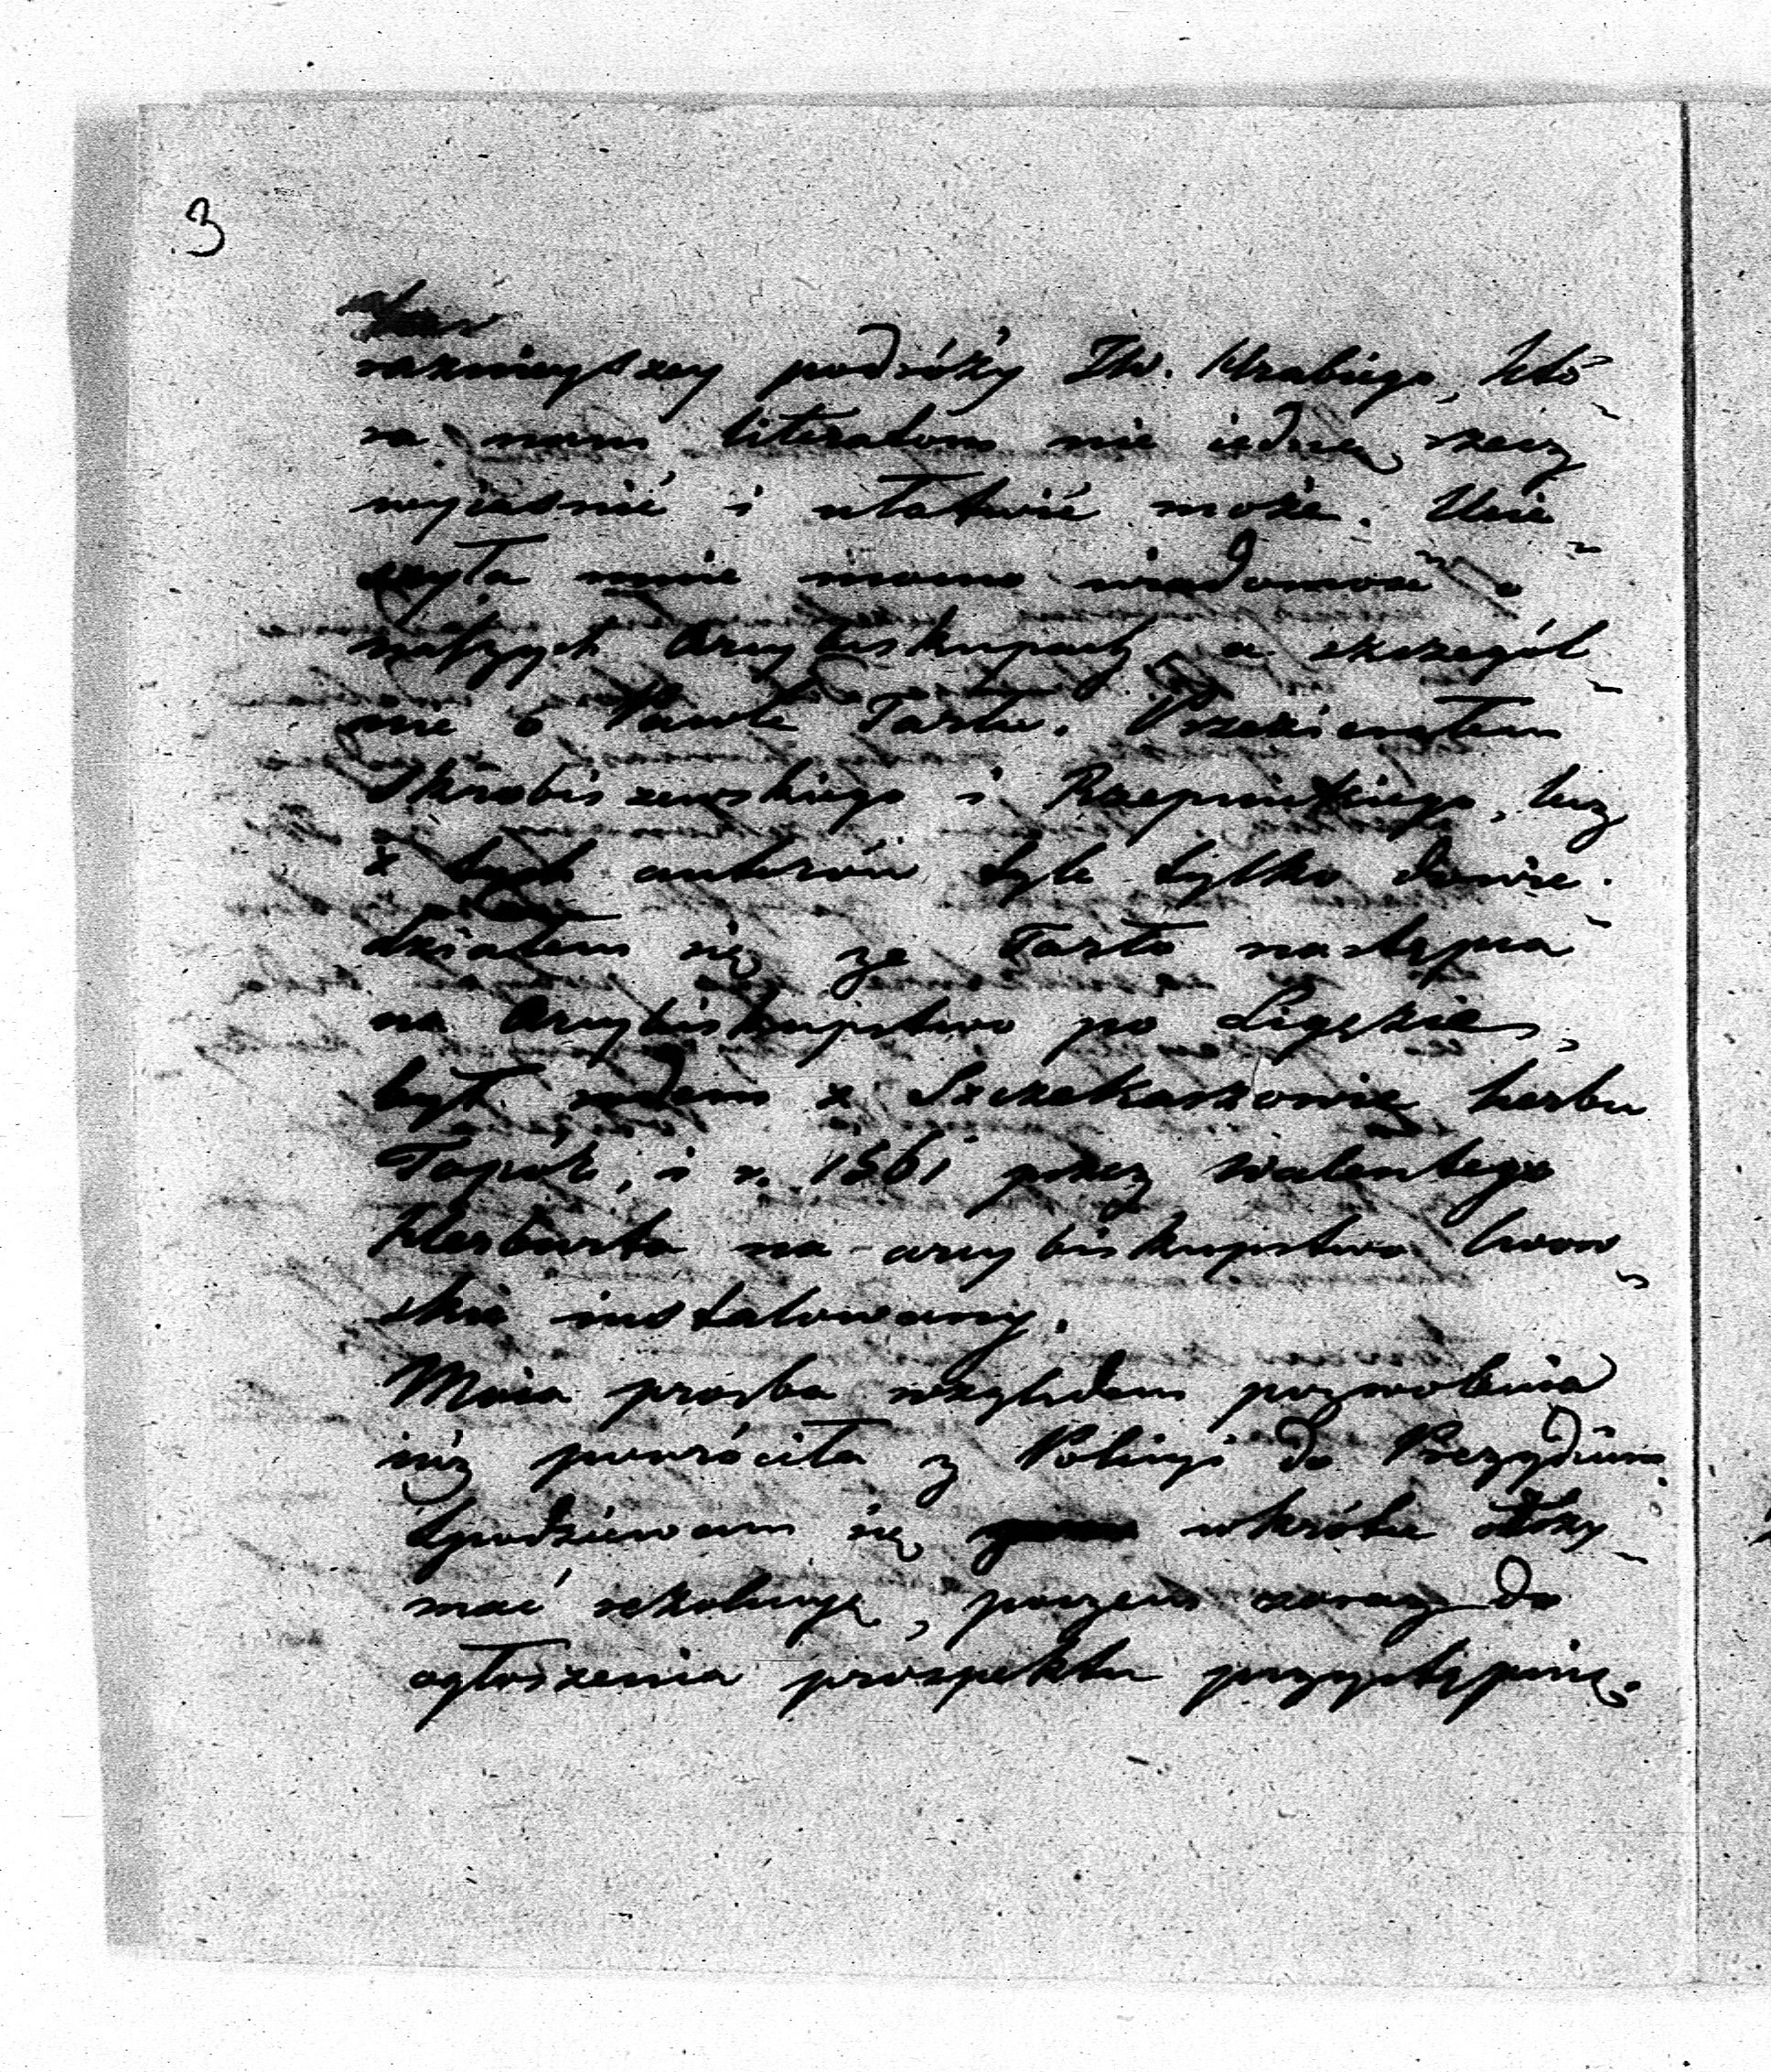 3
raźnieyszey podróży JW. Hrabiego, któ-
ra nam literatom nie iedną rzecz
wyiaśnić i ułatwić może. Ucie-
szyła mnie mocno wiadomość o
naszych Arcybiskupach, a szczegól-
nie o Pawle Tarle. Przezierałem
Skrobiszewskiego i Rzepnickiego, lecz
z tych autorów tyle tylko dowie-
działem się że Tarło nastąpił
na Arcybiskupstwo po Ligęzie,
był rodem z Szczekarzowic herbu
Topór, i r. 1561 przez Walentego
Herburta na arcybiskupstwo lwow-
skie instalowany.
Moia prośba względem pozwolenia
iuż powróciła z Policyi do Prezydium.
Spodziewam się wkrótce otrzy-
mać rezolucyę, poczem zaraz do
ogłoszenia prospektu przystąpię.